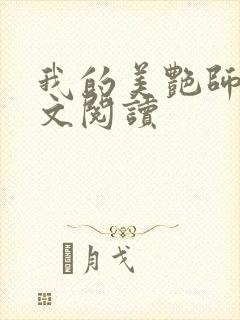 我的美艷師
文閱讀
月戈